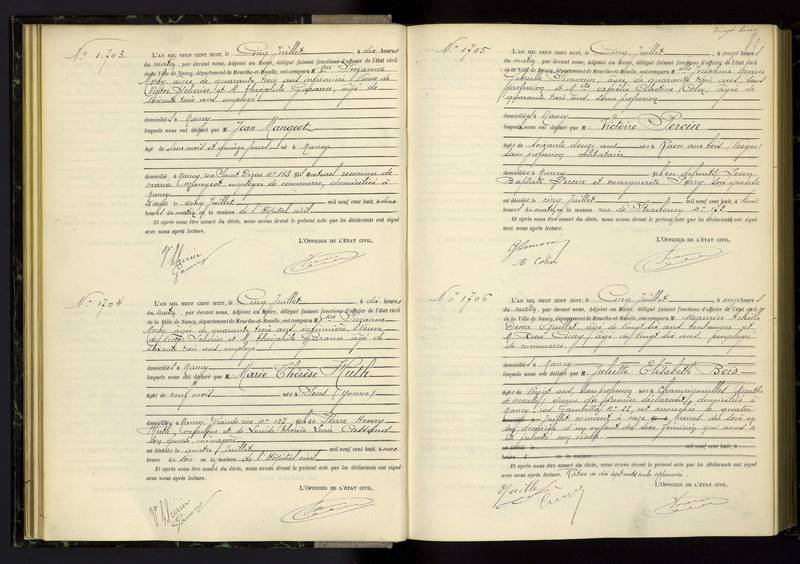 N° 1.703.
L'AN MIL NEUF CENT HUIT, le Cinq Juillet, à dix heures
du matin, par devant nous, Adjoint au Maire, délégué faisant fonctions d'officier de l'état civil
de la Ville de Nancy, département de Meurthe-et-Moselle, ont comparu M me Suzanne
Morby agée de quarante trois ans infirmière Veuve de
Victor Schérier et M. Théophile Garance, âgé de
soixante trois ans employé
domiciliés à Nancy
lesquels nous ont déclaré que M. Jean Mangeot
âgé de deux mois et quinze jours né à Nancy
domicilié à Nancy rue Saint Dizier n° 163 fils naturel reconnu de
Maria Mangeot employée de commerce, domiciliée à
Nancy
est décédé le cinq Juillet mil neuf cent huit, à
heures du matin en la maison de l'Hôpital civil
Et après nous être assuré du décès, nous avons dressé le présent acte que les déclarants ont signé
avec nous après lecture.
L'OFFICIER DE L'ÉTAT CIVIL,
N° 1704
L'AN MIL NEUF CENT HUIT, le Cinq Juillet, à dix heures
du matin, par devant nous, Adjoint au Maire, délégué faisant fonctions d'officier de l'état civil
de la Ville de Nancy, département de Meurthe-et-Moselle, ont comparu M me Suzanne
Morby agée de quarante trois ans infirmière Veuve
de Victor Schérier et M. Théophile Garance âgé de
soixante trois ans employé
domiciliés à Nancy
lesquels nous ont déclaré que M. Marie Thérèse Kuth
âgée de neuf mois née à Sens (Yonne)
domiciliée à Nancy, Grande rue n° 127 fille de Pierre Henry
Kuth, et de
son épouse ménagère
est décédée le quatre Juillet mil neuf cent huit, à onze
heures du soir en la maison de l'Hôpital civil
Et après nous être assuré du décès, nous avons dressé le présent acte que les déclarants ont signé
avec nous après lecture.
L'OFFICIER DE L'ÉTAT CIVIL,
N° 1705
L'AN MIL NEUF CENT HUIT, le Cinq Juillet, à onze heures
du matin, par devant nous, Adjoint au Maire, délégué faisant fonctions d'officier de l'état civil
de la Ville de Nancy, département de Meurthe-et-Moselle, ont comparu M elle Joséphine Marie
Gabrielle Simonin, agée de quarante trois ans sans
profession et M elle Amélie Colin, agée de
quarante trois ans sans profession
domiciliées à Nancy
lesquels nous ont déclaré que M. Victoire Percin
âgée de soixante douze ans née à Raon aux bois (Vosges)
sans profession célibataire
domiciliée à Nancy fille de défunts Jean
Baptiste Percin et Marguerite Perry, son épouse
est décédée le cinq Juillet mil neuf cent huit, à
heures du matin en la maison rue de Strasbourg n° 122
Et après nous être assuré du décès, nous avons dressé le présent acte que les déclarants ont signé
avec nous après lecture.
L'OFFICIER DE L'ÉTAT CIVIL,
Simonin
A. Colin
N° 1706
L'AN MIL NEUF CENT HUIT, le Cinq Juillet, à onze heures
du matin, par devant nous, Adjoint au Maire, délégué faisant fonctions d'officier de l'état civil
de la Ville de Nancy, département de Meurthe-et-Moselle, ont comparu M. Maurice Achille
Guillet, âgé de vingt six ans et
M. René Cuny, âgé de vingt six ans, employé
de commerce
domiciliés à Nancy
lesquels nous ont déclaré que M. Juliette Elisabeth Bois
âgée de vingt ans, sans profession née à Champigneulles (Meurthe
et Moselle) épouse du premier déclarant, domiciliée à
Nancy, rue Gambetta n° 22, est accouchée le quatre
Juillet courant à onze heures du soir en
son domicile d'un enfant du sexe féminin qui nous a
été présenté sans vie
mil neuf cent huit, à
heures en la maison
Et après nous être assuré du décès, nous avons dressé le présent acte que les déclarants ont signé
avec nous après lecture.
L'OFFICIER DE L'ÉTAT CIVIL,
Guillet
Cuny